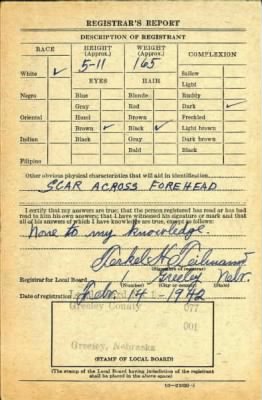 REGISTRAR'S REPORT
DESCRIPTION OF REGISTRANT
RACE HEIGHT (Approx.) WEIGHT (Approx.) COMPLEXION
5-11 165
White ✓ Sallow
EYES HAIR Light
Negro Blue Blonde Ruddy
Gray Red Dark ✓
Oriental Hazel Brown Freckled
Brown ✓ Black ✓ Light brown
Indian Black Gray Dark brown
Bald Black
Filipino
Other obvious physical characteristics that will aid in identification
SCAR ACROSS FOREHEAD
I certify that my answers are true; that the person registered has read or has had
read to him his own answers; that I have witnessed his signature or mark and that
all of his answers of which I have knowledge are true, except as follows:
None to my knowledge.
(Signature of registrar)
Registrar for Local Board 1 Greeley Nebr.
(Number) (City or county) (State)
Date of registration Feb. 14 - 1942
Greeley County 077
001
Greeley, Nebraska
(STAMP OF LOCAL BOARD)
(The stamp of the Local Board having jurisdiction of the registrant
shall be placed in the above space.)